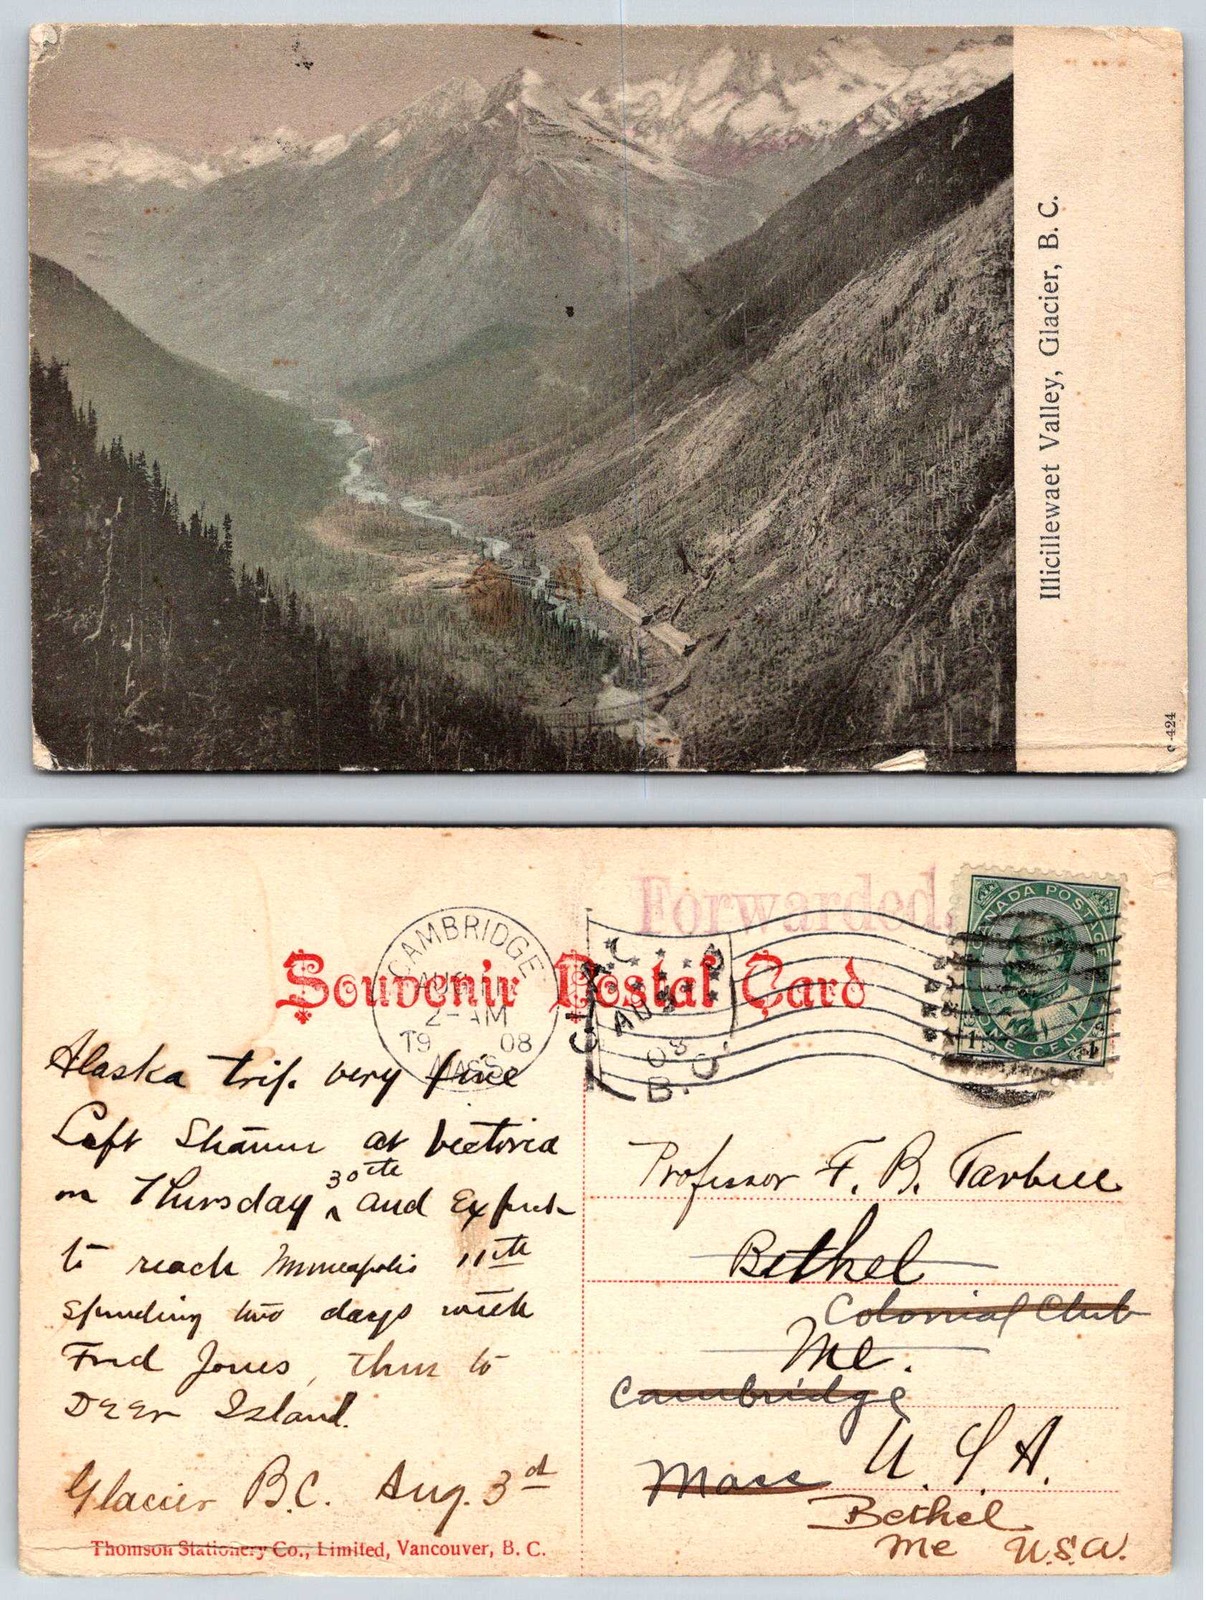 Illicillewaet Valley, Glacier, B. C.
c-424
Forwarded.
CANADA POSTAGE
ONE CENT
1 1
CAMBRIDGE
AUG
2-AM
19 08
MASS
AUG
08
B.C.
Souvenir Postal Card
Alaska trip. very fine
Left Steamer at Victoria
on Thursday 30th and Expect
to reach Minneapolis 11th
spending two days with
Fred Jones, then to
Deer Island.
Glacier B.C. Aug. 3d
Thomson Stationery Co., Limited, Vancouver, B. C.
Professor F. B. Tarbell
Bethel
Colonial Club
Me.
Cambridge
U. S A.
Mass
Bethel
Me U.S.A.